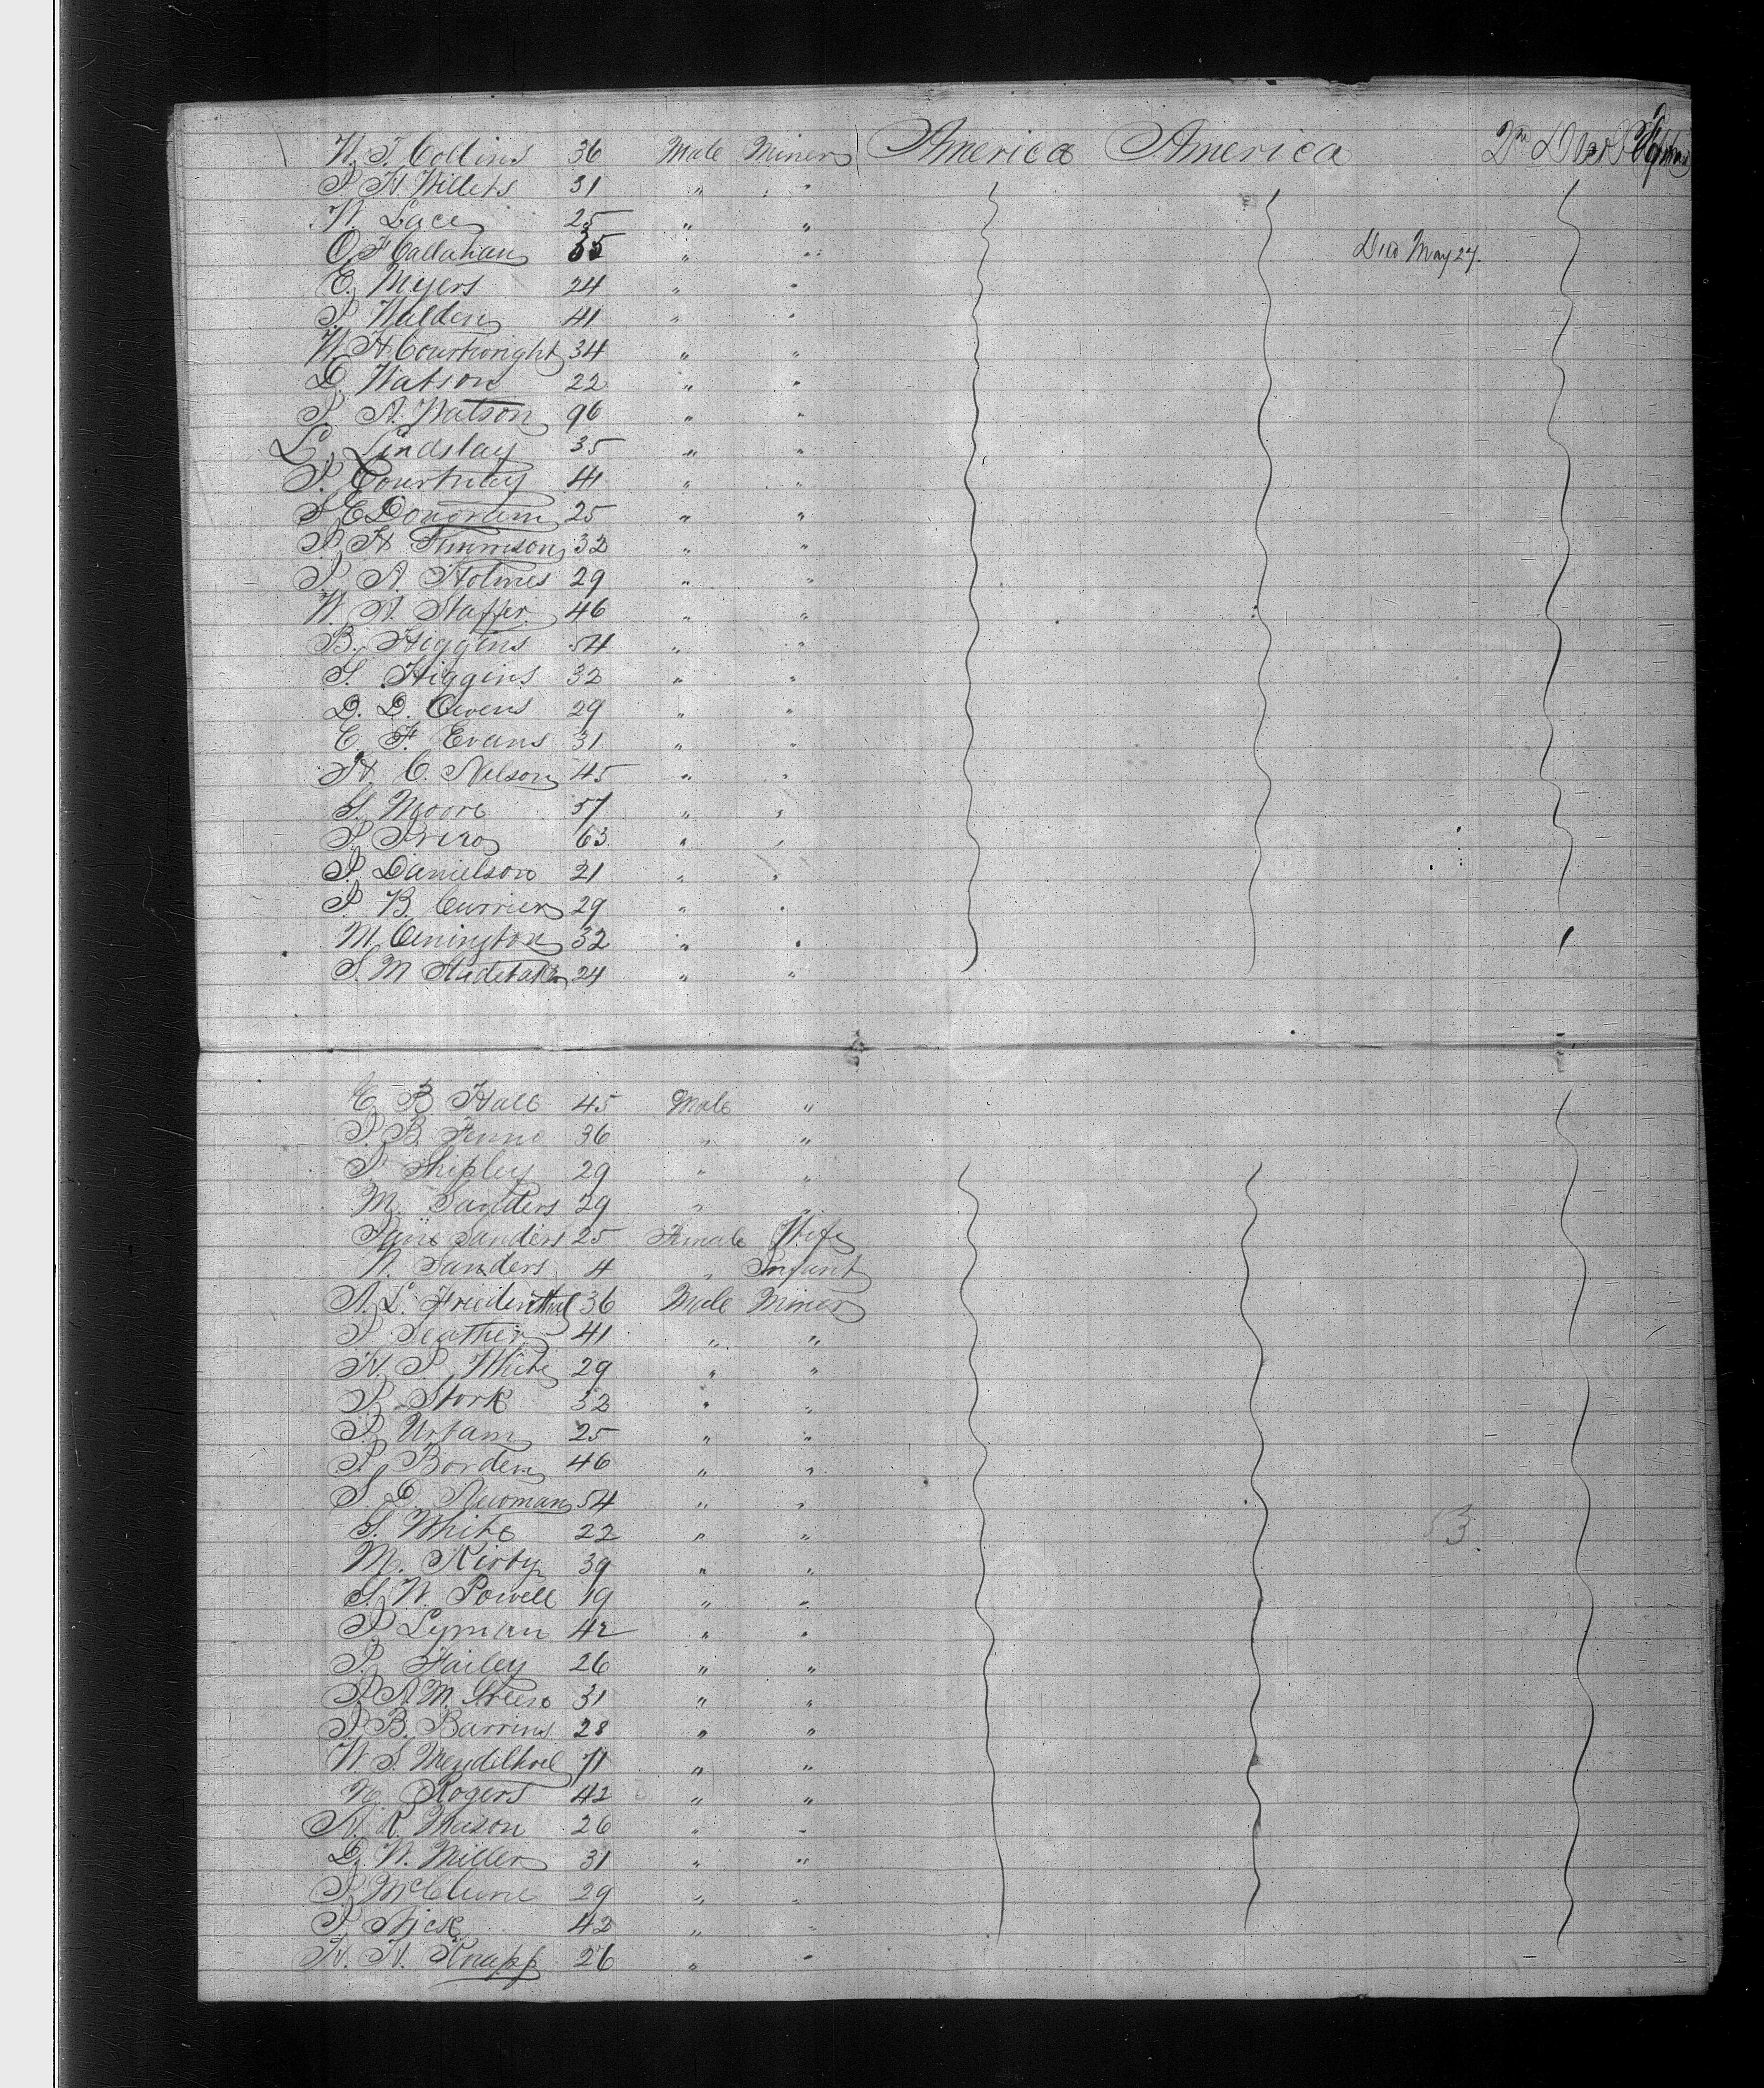 W. J. Collins 36 Male Miner America America
J H Willets 31 " "
W. Lace 25 " "
O F Callahan 35 " " Died May 27.
C. Myers 24 " "
J. Walden 41 " "
W. H Courtwright 34 " "
D. Watson 22 " "
J A. Watson 96 " "
L. Lindslay 35 " "
J. Courtnay 41 " "
S E Donovan 25 " "
J. H Timmson 32 " "
J. A. Holmes 29 " "
W. A. Staffer 46 " "
B. Higgins 54 " "
S. Higgins 32 " "
D. D. Owens 29 " "
E. F. Evans 31 " "
H. C. Nelson 45 " "
G. Moore 57 " "
J. 63 " "
J. Danielson 21 " "
J. B. Currier 29 " "
M. 32 " "
S. M Studebaker 24 " "
E. B Hall 45 Male "
J. B. Fenno 36 " "
J. Shipley 29 " "
M. Sanders 29 " "
Jane Sanders 25 Female Wife
W. Sanders 4 " Infant
A. L. Friedenthal 36 Male Miner
J. Seather 41 " "
H. J. White 29 " "
J. Stork 32 " "
J. Urbam 25 " "
J. Borden 46 " "
S. D. Newman 54 " "
G. White 22 " " 53
M. Kirby 39 " "
G. W. Powell 19 " "
J Lyman 42 " "
J. Failey 26 " "
J A. M. Green 31 " "
J B. Barrins 28 " "
W. S. 71 " "
Rogers 42 " "
A. R. Mason 26 " "
D. W. Miller 31 " "
J. McClune 29 " "
J. 42 " "
H. H. Knapp 26 " "